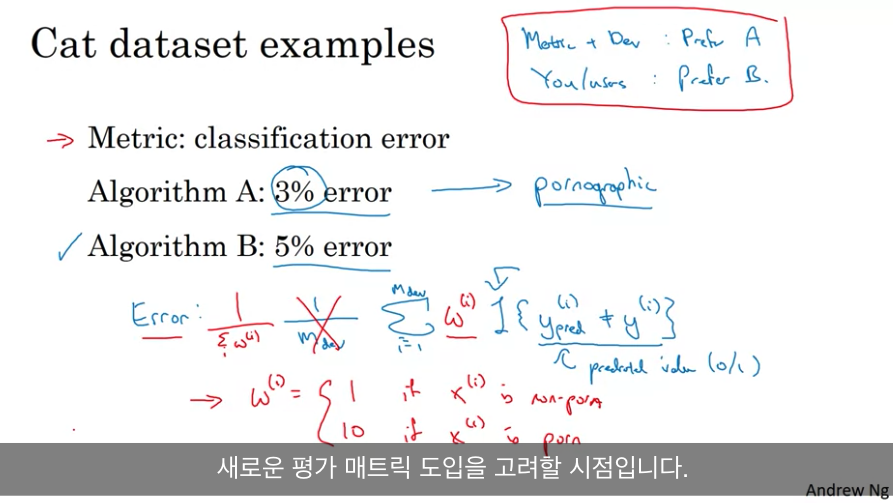 Cat dataset examples
Metric + Dev : Prefer A
You/users : Prefer B.
→ Metric: classification error
Algorithm A: 3% error → pornographic
✓ Algorithm B: 5% error
Error: 1/Σᵢ w⁽ⁱ⁾ 1/m_dev Σᵢ₌₁^{m_dev} w⁽ⁱ⁾ 1{y_pred⁽ⁱ⁾ ≠ y⁽ⁱ⁾}
predicted value (0/1)
→ w⁽ⁱ⁾ = { 1 if x⁽ⁱ⁾ is non-porn
10 if x⁽ⁱ⁾ is porn
새로운 평가 매트릭 도입을 고려할 시점입니다.
Andrew Ng